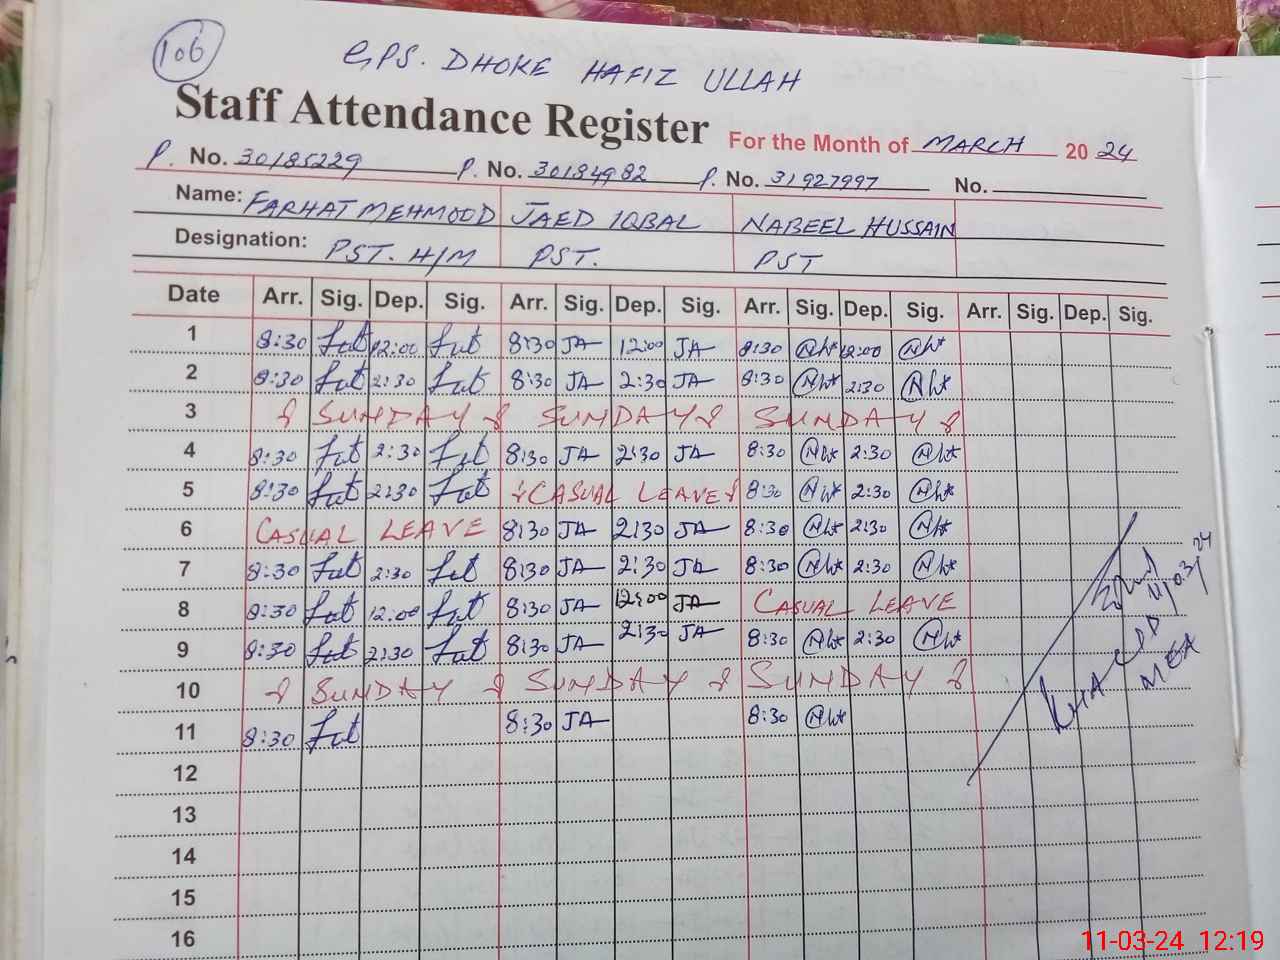 106
GPS. DHOKE HAFIZ ULLAH
Staff Attendance Register For the Month of MARCH 20 24
P. No. 30185229 P. No. 30184982 P. No. 31927997 No.
Name: FARHAT MEHMOOD JAED IQBAL NABEEL HUSSAIN
Designation: PST. H/M PST. PST
Date Arr. Sig. Dep. Sig. Arr. Sig. Dep. Sig. Arr. Sig. Dep. Sig. Arr. Sig. Dep. Sig.
1 8:30 12:00 8:30 JA 12:00 JA 8:30 12:00
2 8:30 2:30 8:30 JA 2:30 JA 8:30 2:30
3 SUNDAY SUNDAY SUNDAY
4 8:30 2:30 8:30 JA 2:30 JA 8:30 2:30
5 8:30 2:30 CASUAL LEAVE 8:30 2:30
6 CASUAL LEAVE 8:30 JA 2:30 JA 8:30 2:30
7 8:30 2:30 8:30 JA 2:30 JA 8:30 2:30
8 8:30 12:00 8:30 JA 12:00 JA CASUAL LEAVE
9 8:30 2:30 8:30 JA 2:30 JA 8:30 2:30
10 SUNDAY SUNDAY SUNDAY
11 8:30 8:30 JA 8:30
12
13
14
15
16
MEA
11-03-24 12:19